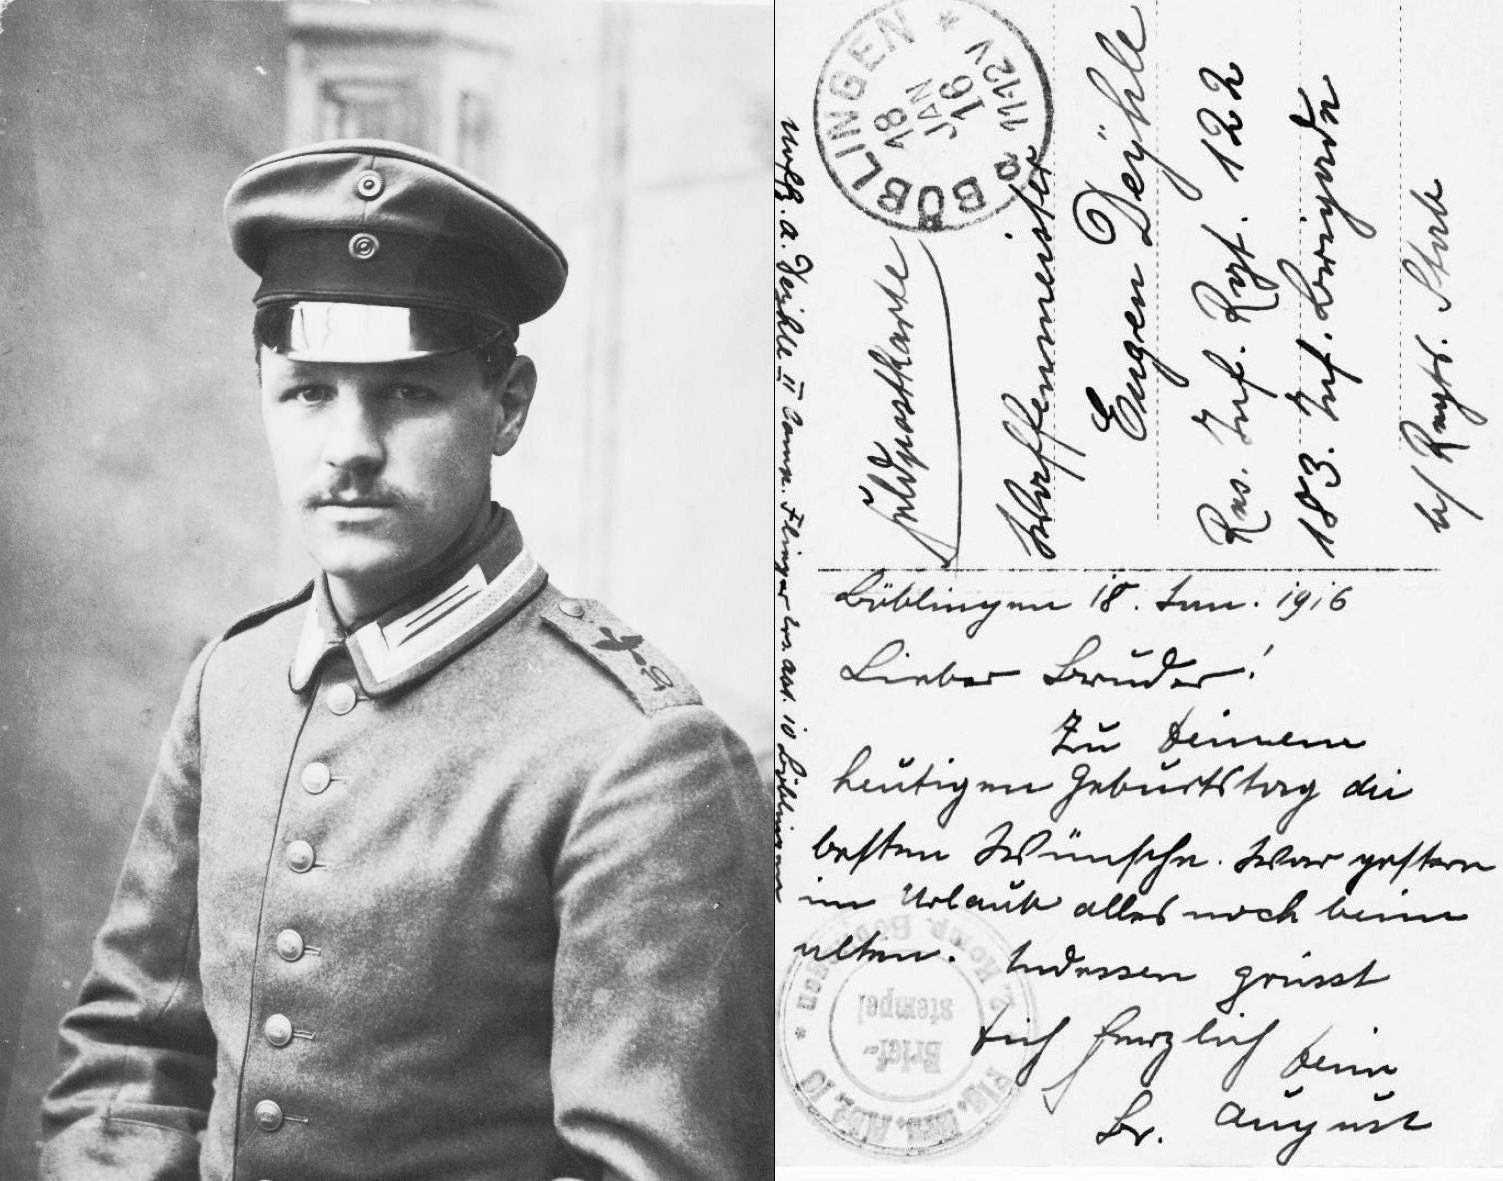 BÖBLINGEN
18
JAN
16
11-12V
a BÖBLINGEN *
Feldpostkarte
Waffenmeister
Eugen Deÿhle
Res. Inf. Regt. 122
183. Inf. Brigade
b/ Regts. Stab
Böblingen 18. Jan. 1916
Lieber Bruder!
Zu Deinem
heutigen Geburtstag die
besten Wünsche. War gestern
im Urlaub alles noch beim
alten. Indessen grüsst
Dich herzlich Dein
Br. August
Uoffz. A. Deyhle II Comp. Flieger Ers. Abt. 10 Böblingen
Flg. Ers. Abt. 10 * 2. Komp. Böblingen *
Brief-
stempel
10